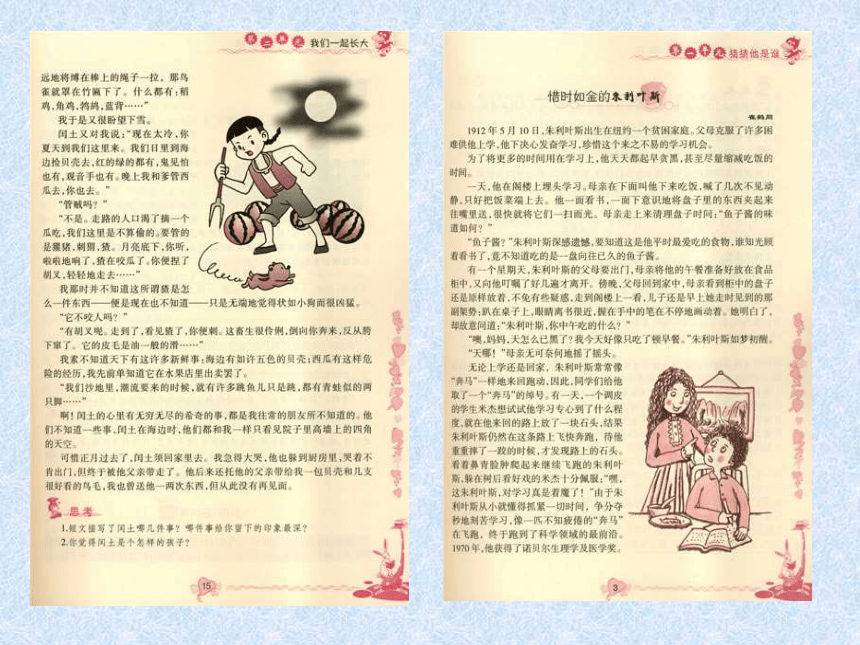 第二单元 我们一起长大
远地将缚在棒上的绳子一拉，那鸟
雀就罩在竹匾下了。什么都有：稻
鸡，角鸡，鹁鸪，蓝背……”
我于是又很盼望下雪。
闰土又对我说：“现在太冷，你
夏天到我们这里来。我们日里到海
边捡贝壳去，红的绿的都有，鬼见怕
也有，观音手也有。晚上我和爹管西
瓜去，你也去。”
“管贼吗？”
“不是。走路的人口渴了摘一个
瓜吃，我们这里是不算偷的。要管的
是獾猪，刺猬，猹。月亮底下，你听，
啦啦地响了，猹在咬瓜了。你便捏了
胡叉，轻轻地走去……”
我那时并不知道这所谓猹是怎
么一件东西——便是现在也不知道——只是无端地觉得状如小狗而很凶猛。
“它不咬人吗？”
“有胡叉呢。走到了，看见猹了，你便刺。这畜生很伶俐，倒向你奔来，反从胯
下窜了。它的皮毛是油一般的滑……”
我素不知道天下有这许多新鲜事：海边有如许五色的贝壳；西瓜有这样危
险的经历，我先前单知道它在水果店里出卖罢了。
“我们沙地里，潮流要来的时候，就有许多跳鱼儿只是跳，都有青蛙似的两
只脚……”
啊！闰土的心里有无穷无尽的希奇的事，都是我往常的朋友所不知道的。他
们不知道一些事，闰土在海边时，他们都和我一样只看见院子里高墙上的四角
的天空。
可惜正月过去了，闰土须回家里去。我急得大哭，他也躲到厨房里，哭着不
肯出门，但终于被他父亲带走了。他后来还托他的父亲带给我一包贝壳和几支
很好看的鸟毛，我也曾送他一两次东西，但从此没有再见面。
思考
1.短文描写了闰土哪几件事？哪件事给你留下的印象最深？
2.你觉得闰土是个怎样的孩子？
15
第一单元 猜猜他是谁
惜时如金的朱利叶斯
崔鹤同
1912年5月10日，朱利叶斯出生在纽约一个贫困家庭。父母克服了许多困
难供他上学，他下决心发奋学习，珍惜这个来之不易的学习机会。
为了将更多的时间用在学习上，他天天都起早贪黑，甚至尽量缩减吃饭的
时间。
一天，他在阁楼上埋头学习。母亲在下面叫他下来吃饭，喊了几次不见动
静，只好把饭菜端上去。他一面看书，一面下意识地将盘子里的东西夹起来
往嘴里送，很快就将它们一扫而光。母亲走上来清理盘子时问：“鱼子酱的味
道如何？”
“鱼子酱？”朱利叶斯深感遗憾，要知道这是他平时最爱吃的食物，谁知光顾
着看书了，竟不知道吃的是一盘向往已久的鱼子酱。
有一个星期天，朱利叶斯的父母要出门，母亲将他的午餐准备好放在食品
柜中，又向他叮嘱了好几遍才离开。傍晚，父母回到家中，母亲看到柜中的盘子
还是原样放着，不免有些疑惑，走到阁楼上一看，儿子还是早上她走时见到的那
副架势：趴在桌子上，眼睛离书很近，握在手中的笔在不停地画动着。她明白了，
却故意问道：“朱利叶斯，你中午吃的什么？”
“噢，妈妈，天怎么已黑了？我今天好像只吃了顿早餐。”朱利叶斯如梦初醒。
“天哪！”母亲无可奈何地摇了摇头。
无论上学还是回家，朱利叶斯常常像
“奔马”一样地来回跑动，因此，同学们给他
取了一个“奔马”的绰号。有一天，一个调皮
的学生米杰想试试他学习专心到了什么程
度，就在他来回的路上放了一块石头，结果
朱利叶斯仍然在这条路上飞快奔跑，待他
重重摔了一跤的时候，才发现路上的石头。
看着鼻青脸肿爬起来继续飞跑的朱利叶
斯，躲在树后看好戏的米杰十分佩服：“嘿，
这朱利叶斯，对学习真是着魔了！”由于朱
利叶斯从小就懂得抓紧一切时间，争分夺
秒地刻苦学习，像一匹不知疲倦的“奔马”
在飞跑，终于跑到了科学领域的最前沿。
1970年，他获得了诺贝尔生理学及医学奖。
3